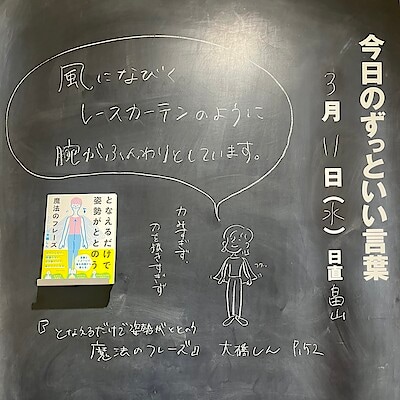 今日のずっといい言葉
3月11日(水) 日直 畠山
風になびく
レースカーテンのように
腕がふんわりとしています。
力みすぎず、
力を抜きすぎず
となえるだけで
姿勢がととのう
魔法のフレーズ
『となえるだけで姿勢がととのう
魔法のフレーズ』 大橋しん P.152